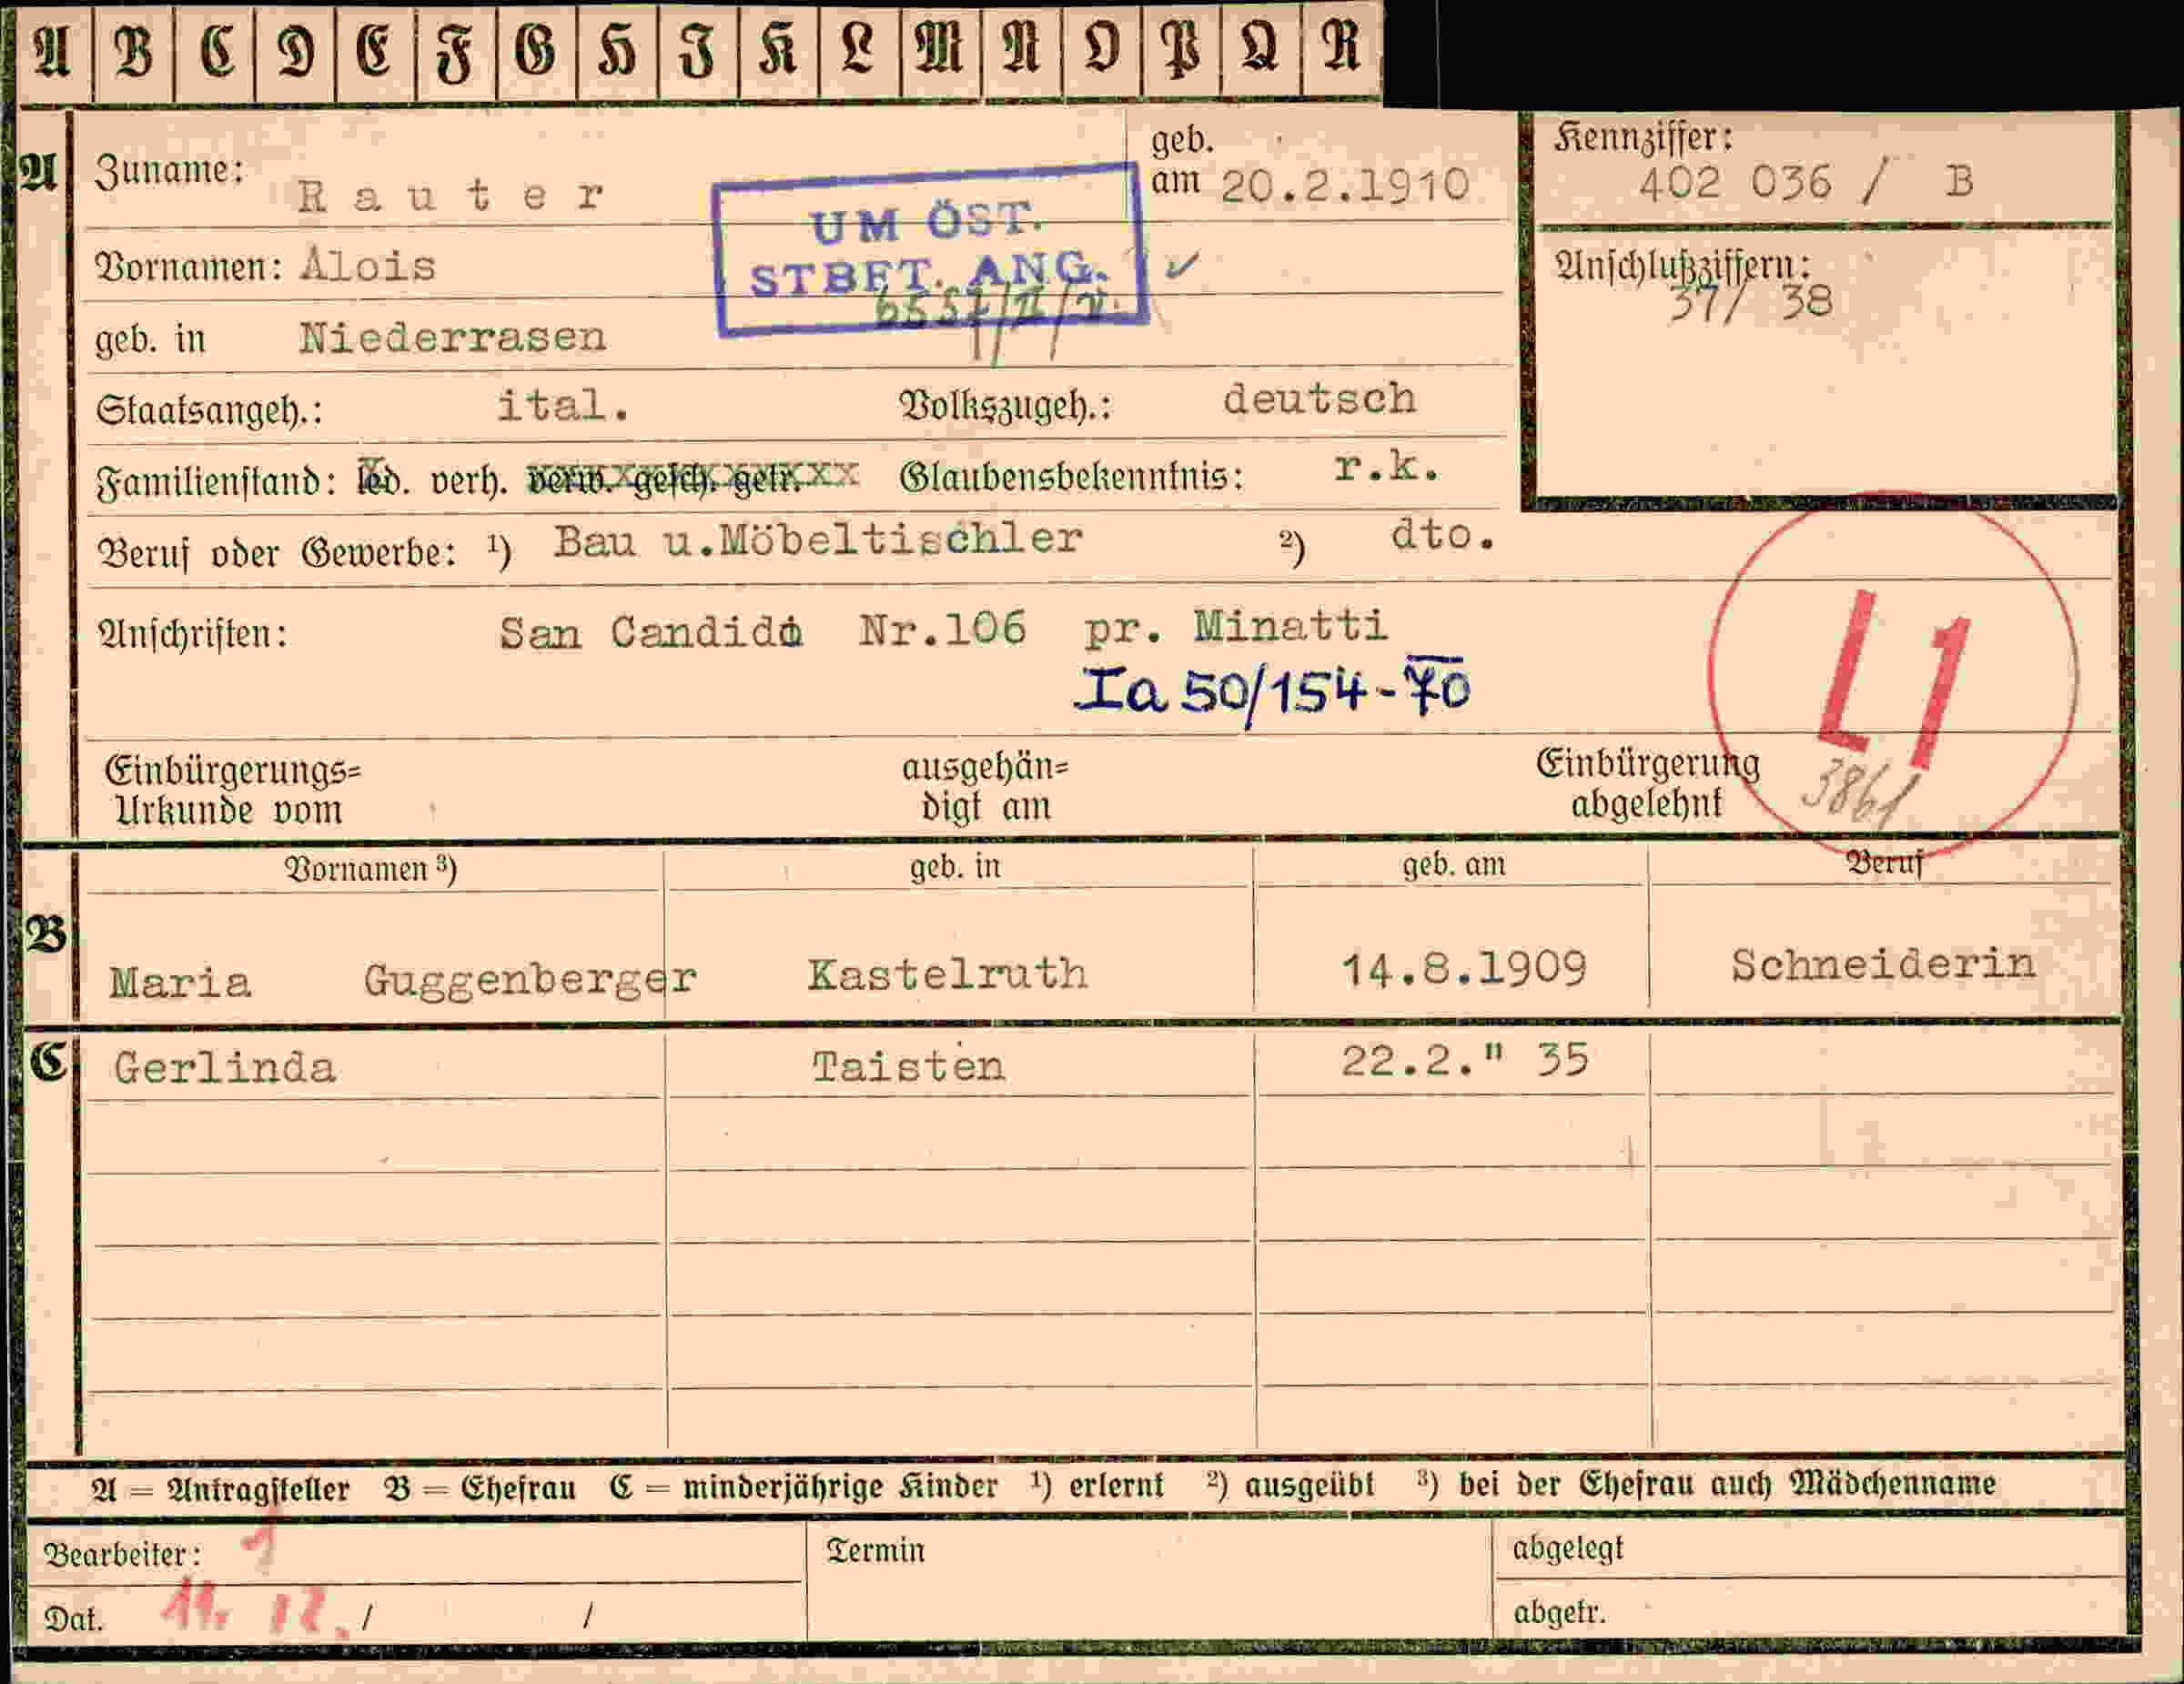 A B C D E F G H I K L M N O P Q R
A
Zuname: Rauter
geb. am 20.2.1910
Kennziffer: 402 036 / B
UM ÖST. STBFT. ANG.
Vornamen: Alois
Anschlußziffern: 37/ 38
geb. in Niederrasen
Staatsangeh.: ital. Volkszugeh.: deutsch
Familienstand: led. verh. verw. gesch. getr. Glaubensbekenntnis: r.k.
Beruf oder Gewerbe: ¹) Bau u.Möbeltischler ²) dto.
Anschriften: San Candido Nr.106 pr. Minatti
Ia 50/154-70
L1
3861
Einbürgerungs=
Urkunde vom
ausgehän=
digt am
Einbürgerung
abgelehnt
B
Vornamen ³) geb. in geb. am Beruf
Maria Guggenberger Kastelruth 14.8.1909 Schneiderin
C Gerlinda Taisten 22.2." 35
A = Antragsteller B = Ehefrau C = minderjährige Kinder ¹) erlernt ²) ausgeübt ³) bei der Ehefrau auch Mädchenname
Bearbeiter: 1
Termin
abgelegt
Dat. 11. 12. / /
abgetr.